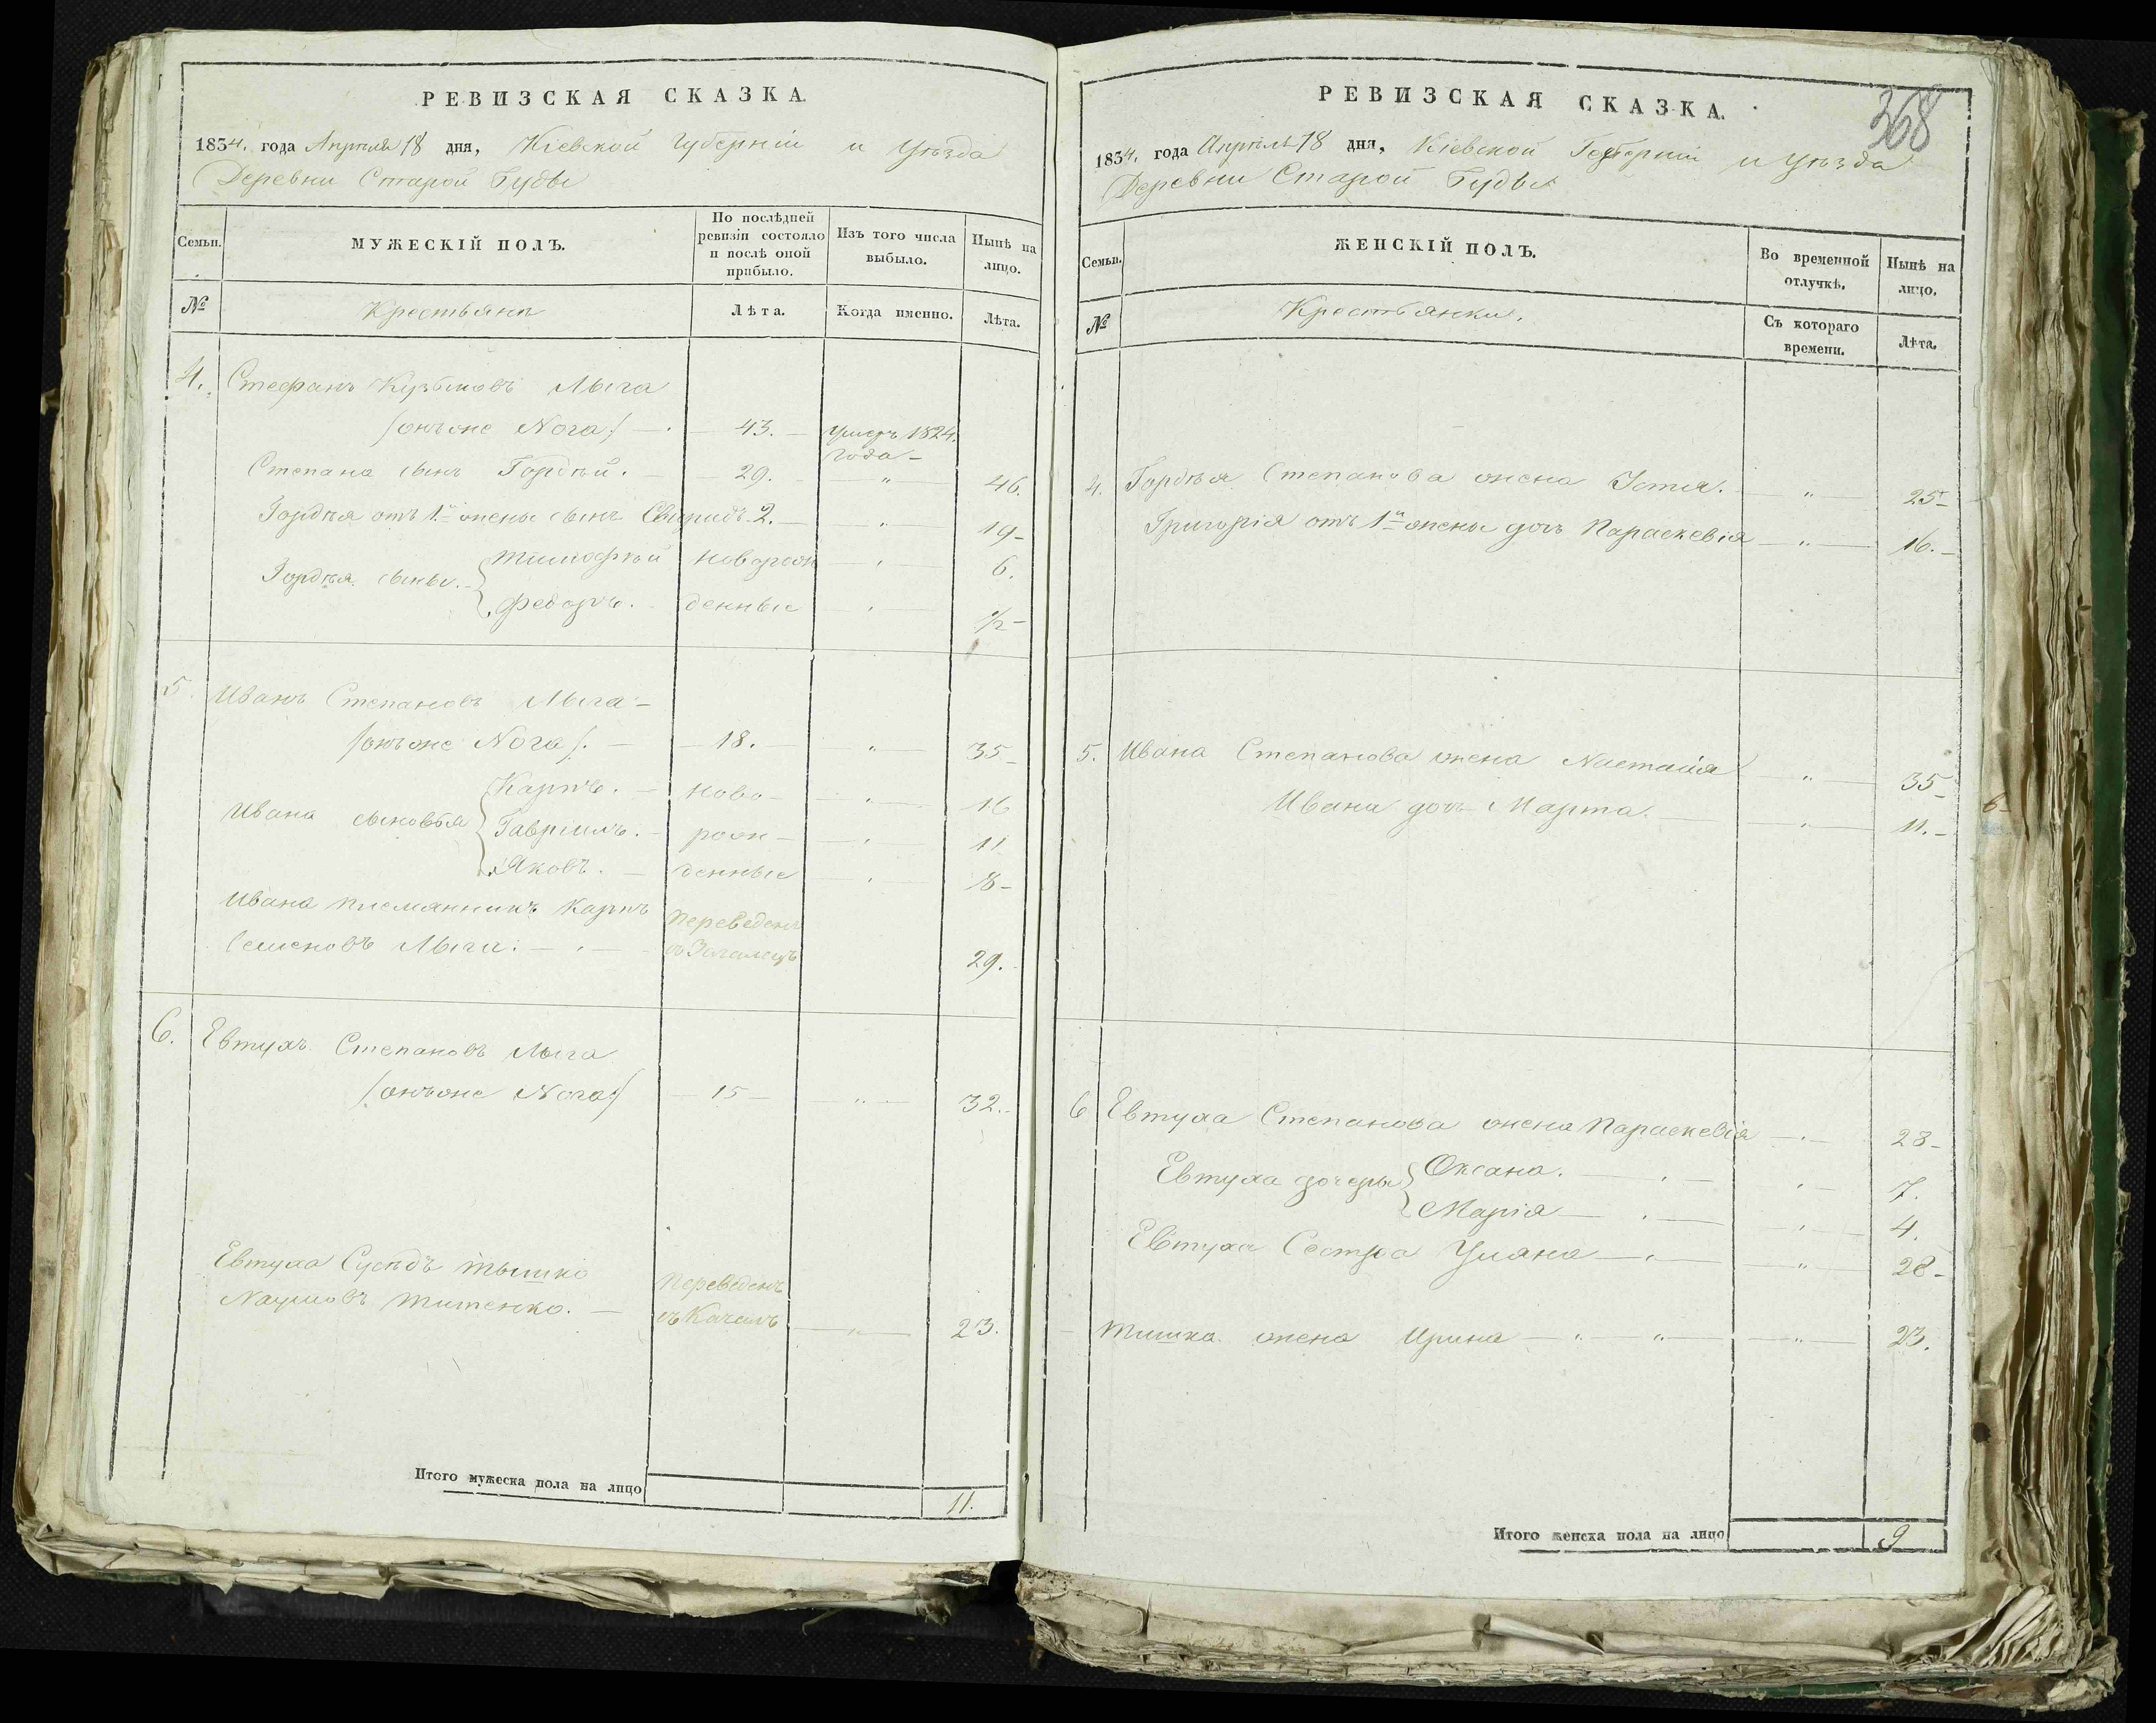 РЕВИЗСКАЯ СКАЗКА.
1834. года Апреля 18 дня, Кіевской губерніи и уѣзда
Деревни Старой Буды
Семьи.
МУЖЕСКІЙ ПОЛЪ.
По послѣдней
ревизіи состояло
и послѣ оной
прибыло.
Изъ того числа
выбыло.
Нынѣ на
лицо.
№
Крестьяне
Лѣта.
Когда именно.
Лѣта.
4. Стефанъ Кузьмовъ Лыга
/онъже Nога/ — 43. — умеръ 1824.
года —
Степана сынъ Гордѣй. — 29. — " — 46.
Гордѣя отъ 1й жены сынъ Свиридъ. 2. — " — 19 —
Гордѣя сыны. Тимофѣй новорож — " — 6.
Федоръ. денные — " — 1/2 —
5. Иванъ Степановъ Лыга —
/онъже Nога/. — 18. — " — 35 —
Карпъ. — ново — " — 16
Ивана сыновья Гавріилъ. — рож — " — 11
Яковъ. — денные — " — 8 —
Ивана племянникъ Карпъ Переведенъ
Семеновъ Лыга. — " — 29.
6. Евтухъ Степановъ Лыга
/онъже Nога/ — 15 — " — 32. —
Евтуха Сусѣдъ Тышко Переведенъ
Nаумовъ Титенко. — " — 23.
Итого мужеска пола на лицо 11.
368
РЕВИЗСКАЯ СКАЗКА.
1834. года Апрѣля 18 дня, Кіевской Губерніи и уѣзда
Деревни Старой Буды
Семьи.
ЖЕНСКІЙ ПОЛЪ.
Во временной
отлучкѣ.
Нынѣ на
лицо.
№
Крестьянки.
Съ котораго
времени.
Лѣта.
4. Гордѣя Степанова жена Устя. — " — 25 —
Григорія отъ 1й жены дочь Параскевія — " — 16. —
5. Ивана Степанова жена Nастасія — " — 35 —
Ивана дочь Марта. — " — 11. —
6 Евтуха Степанова жена Параскевія — " — 28 —
Евтуха дочеры Оксана. — " — 7.
Марія — " — 4.
Евтуха Сестра Уляна — " — 28 —
Тишка жена Ирина — " — " — 23.
Итого женска пола на лицо 9